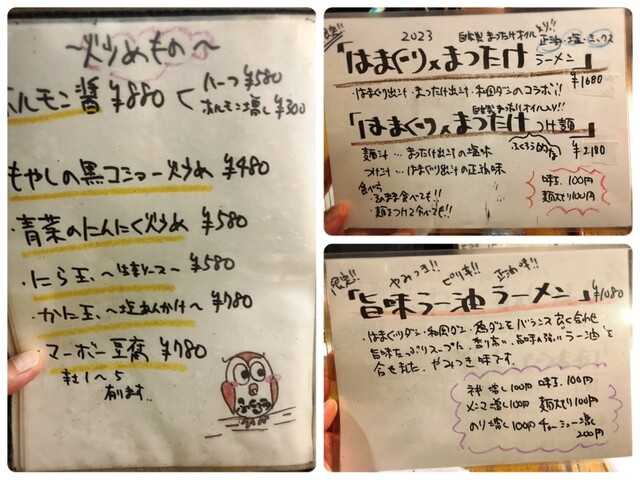 ～炒めもの～
ホルモン醤 ¥880
ハーフ ¥580
ホルモン増し ¥300
もやしの黒コショー炒め ¥480
・青菜のにんにく炒め ¥580
・にら玉 ¥580
・かに玉 ～塩あんかけ～ ¥780
・マーボー豆腐 ¥780
辛1～5
有ります。
限定!! 2023 自家製まったけオイル入り!! 正油・塩・ミックス
「はまぐり×まったけラーメン」
¥1680
・はまぐり出汁・まったけ出汁・和風ダシのコラボ!!
自家製まったけオイル入り!!
「はまぐり×まったけつけ麺」
¥2180
麺汁…まったけ出汁の塩味
つけ汁…はまぐり出汁の正油味
食べ方
・そのまま食べても!!
・麺をつけて食べても!!
味玉 100円
麺大もり100円
限定!! やみつき!! ピリ辛!! 正油味!!
「旨味ラー油ラーメン」 ¥1080
合せました。やみつき味です。
ネギ増し100円 味玉 100円
メンマ増し100円 麺大もり100円
のり増し100円 チャーシュー増し
200円